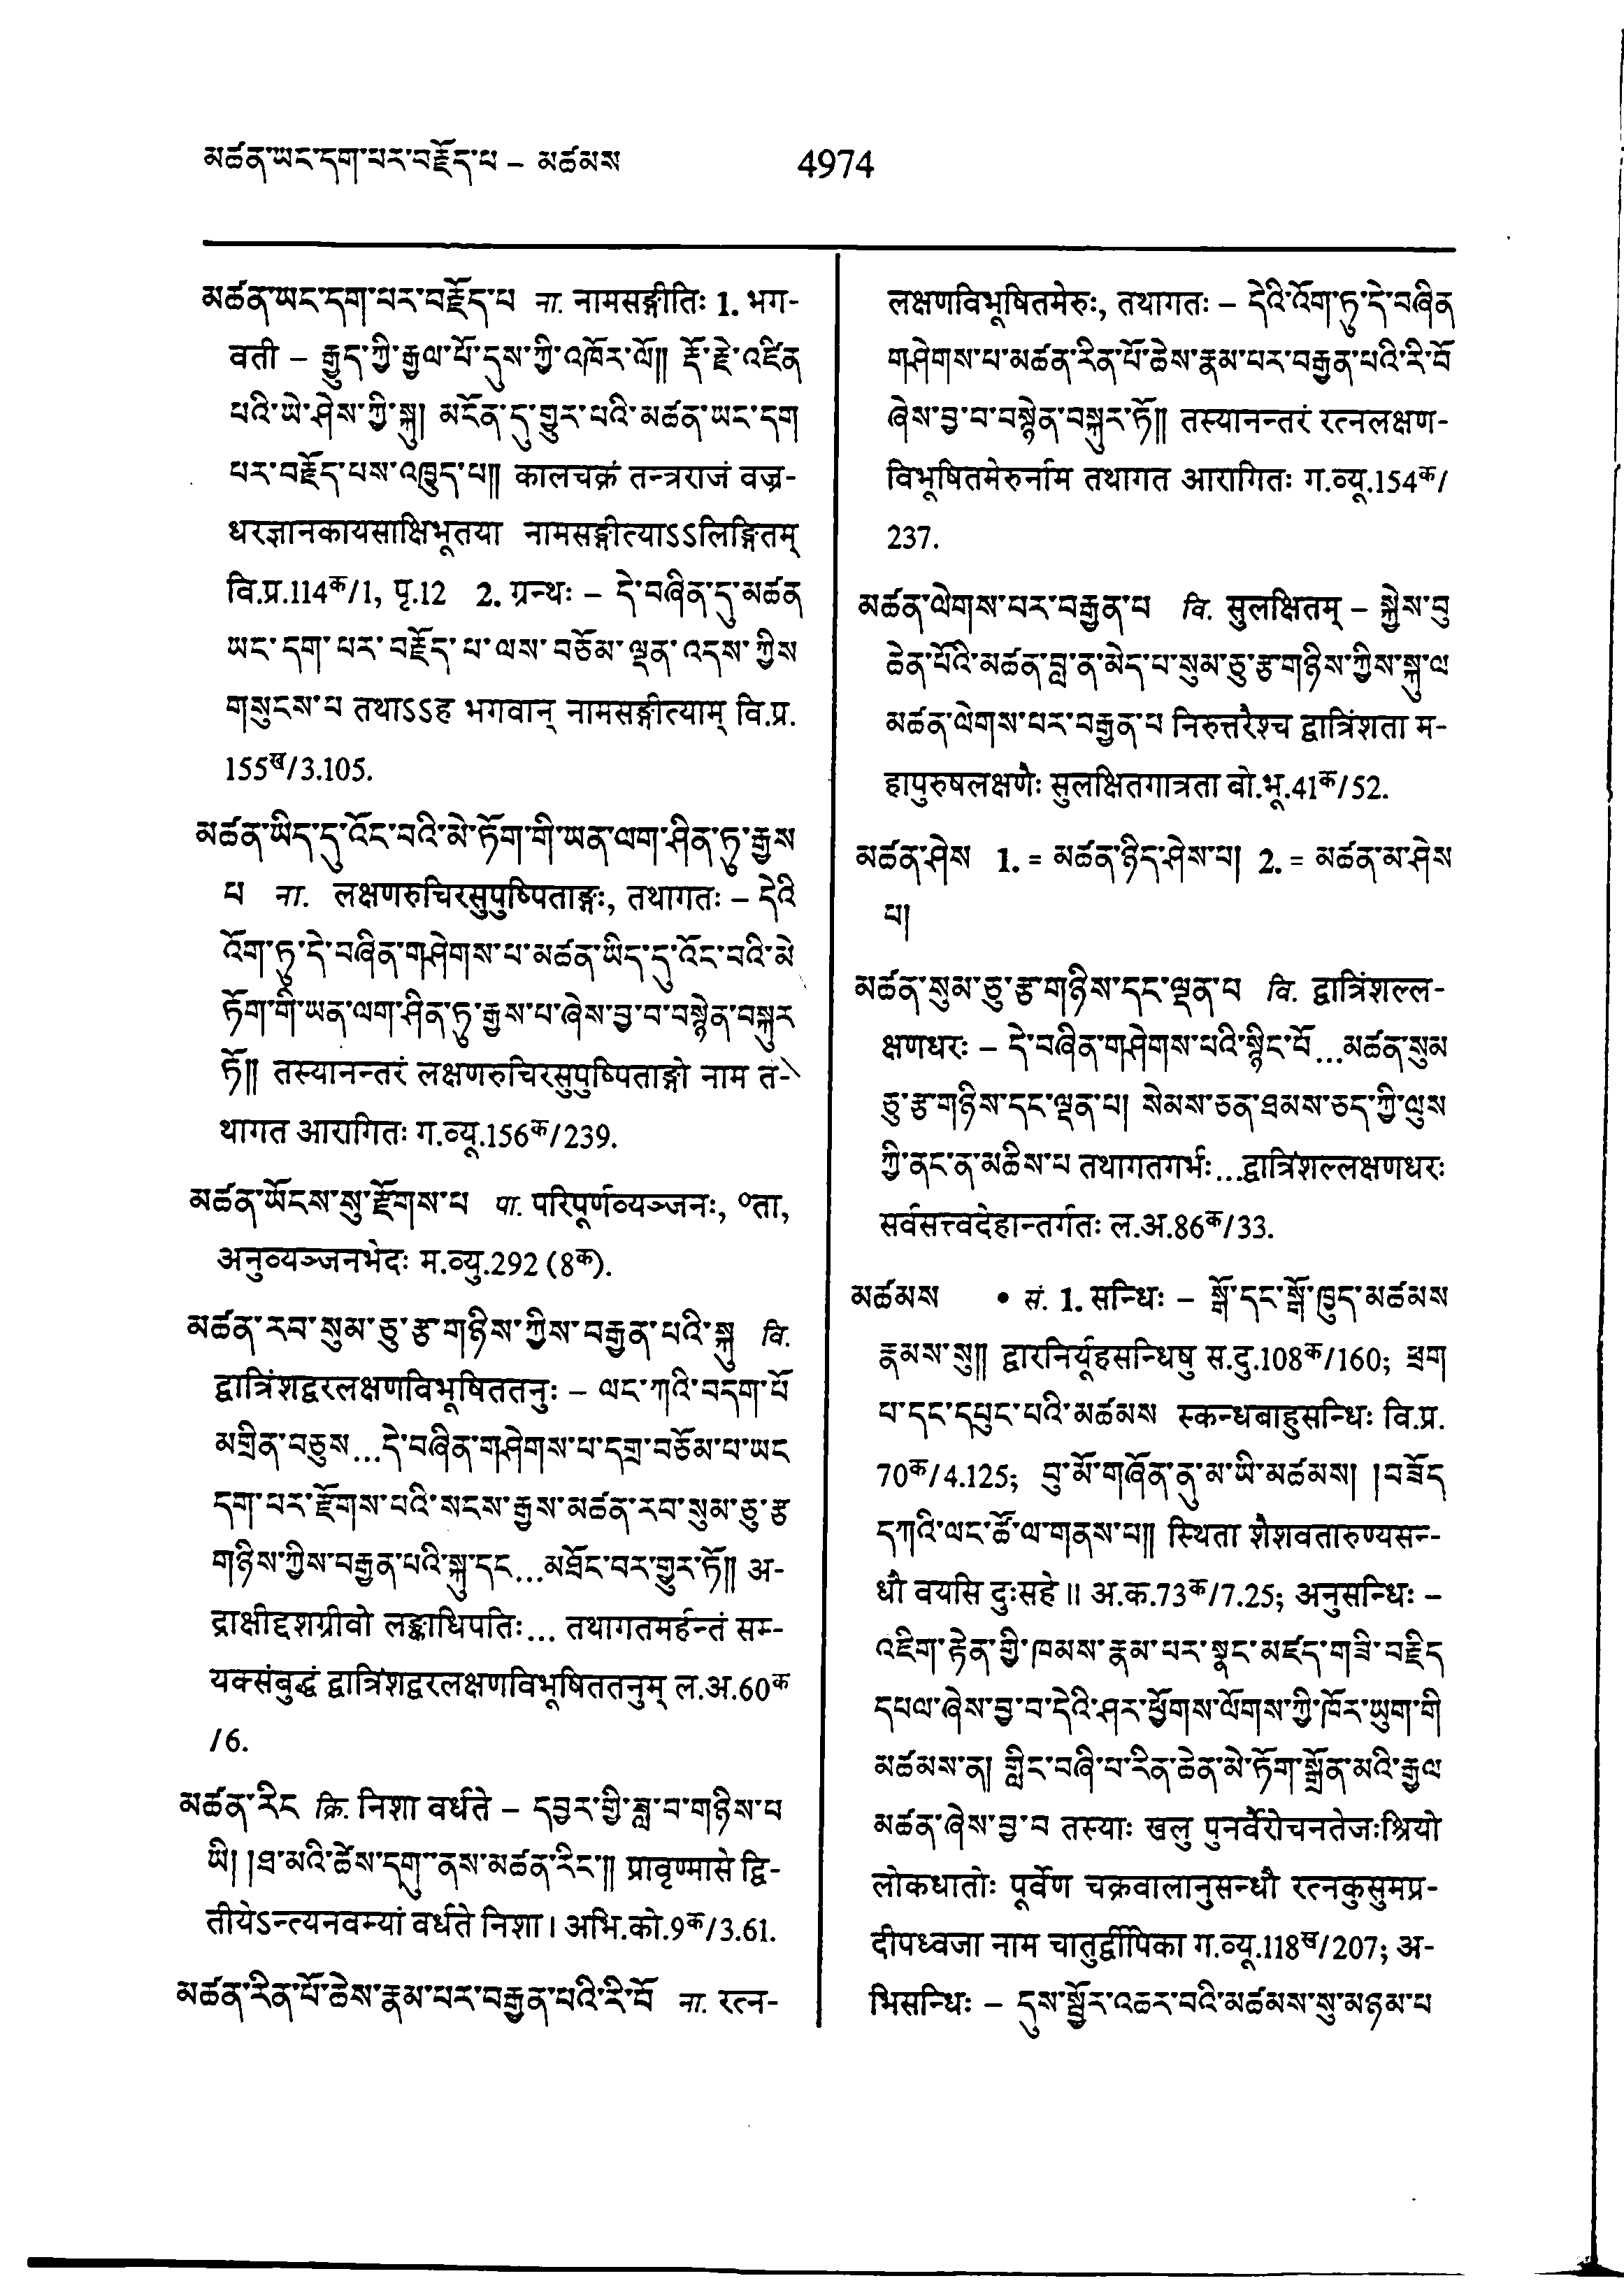 མཚན་ཡང་དག་པར་བརྗོད་པ – མཚམས
4974
མཚན་ཡང་དག་པར་བརྗོད་པ ना. नामसङ्गीतिः 1. भग-
वती – རྒྱུད་ཀྱི་རྒྱལ་པོ་དུས་ཀྱི་འཁོར་ལོ།། རྡོ་རྗེ་འཛིན
པའི་ཡེ་ཤེས་ཀྱི་སྐུ། མངོན་དུ་གྱུར་པའི་མཚན་ཡང་དག
པར་བརྗོད་པས་འཁྱུད་པ།། कालचक्रं तन्त्रराजं वज्र-
धरज्ञानकायसाक्षिभूतया नामसङ्गीत्याऽऽलिङ्गितम्
वि.प्र.114क/1, पृ.12 2. ग्रन्थः – དེ་བཞིན་དུ་མཚན
ཡང་དག་པར་བརྗོད་པ་ལས་བཅོམ་ལྡན་འདས་ཀྱིས
གསུངས་པ तथाऽऽह भगवान् नामसङ्गीत्याम् वि.प्र.
155ख/3.105.
མཚན་ཡིད་དུ་འོང་བའི་མེ་ཏོག་གི་ཡན་ལག་ཤིན་ཏུ་རྒྱས
པ ना. लक्षणरुचिरसुपुष्पिताङ्गः, तथागतः – དེའི
འོག་ཏུ་དེ་བཞིན་གཤེགས་པ་མཚན་ཡིད་དུ་འོང་བའི་མེ
ཏོག་གི་ཡན་ལག་ཤིན་ཏུ་རྒྱས་པ་ཞེས་བྱ་བ་བསྙེན་བསྐུར
ཏོ།། तस्यानन्तरं लक्षणरुचिरसुपुष्पिताङ्गो नाम त-
थागत आरागितः ग.व्यू.156क/239.
མཚན་ཡོངས་སུ་རྫོགས་པ पा. परिपूर्णव्यञ्जनः, ०ता,
अनुव्यञ्जनभेदः म.व्यु.292 (8क).
མཚན་རབ་སུམ་ཅུ་རྩ་གཉིས་ཀྱིས་བརྒྱན་པའི་སྐུ वि.
द्वात्रिंशद्वरलक्षणविभूषिततनुः – ལང་ཀའི་བདག་པོ
མགྲིན་བཅུས...དེ་བཞིན་གཤེགས་པ་དགྲ་བཅོམ་པ་ཡང
དག་པར་རྫོགས་པའི་སངས་རྒྱས་མཚན་རབ་སུམ་ཅུ་རྩ
གཉིས་ཀྱིས་བརྒྱན་པའི་སྐུ་དང...མཐོང་བར་གྱུར་ཏོ།། अ-
द्राक्षीद्दशग्रीवो लङ्काधिपतिः... तथागतमर्हन्तं सम-
यक्संबुद्धं द्वात्रिंशद्वरलक्षणविभूषिततनुम् ल.अ.60क
/6.
མཚན་རིང क्रि. निशा वर्धते – དབྱར་གྱི་ཟླ་བ་གཉིས་པ
ཡི། །ཐ་མའི་ཚེས་དགུ་ནས་མཚན་རིང་།། प्रावृण्मासे द्वि-
तीयेऽन्त्यनवम्यां वर्धते निशा। अभि.को.9क/3.61.
མཚན་རིན་པོ་ཆེས་རྣམ་པར་བརྒྱན་པའི་རི་བོ ना. रत्न-
लक्षणविभूषितमेरुः, तथागतः – དེའི་འོག་ཏུ་དེ་བཞིན
གཤེགས་པ་མཚན་རིན་པོ་ཆེས་རྣམ་པར་བརྒྱན་པའི་རི་བོ
ཞེས་བྱ་བ་བསྙེན་བསྐུར་ཏོ།། तस्यानन्तरं रत्नलक्षण-
विभूषितमेरुर्नाम तथागत आरागितः ग.व्यू.154क/
237.
མཚན་ལེགས་པར་བརྒྱན་པ वि. सुलक्षितम् – སྐྱེས་བུ
ཆེན་པོའི་མཚན་བླ་ན་མེད་པ་སུམ་ཅུ་རྩ་གཉིས་ཀྱིས་སྐུ་ལ
མཚན་ལེགས་པར་བརྒྱན་པ निरुत्तरैश्च द्वात्रिंशता म-
हापुरुषलक्षणैः सुलक्षितगात्रता बो.भू.41क/52.
མཚན་ཤེས 1. = མཚན་ཉིད་ཤེས་པ། 2. = མཚན་མ་ཤེས
པ།
མཚན་སུམ་ཅུ་རྩ་གཉིས་དང་ལྡན་པ वि. द्वात्रिंशल्ल-
क्षणधरः – དེ་བཞིན་གཤེགས་པའི་སྙིང་པོ...མཚན་སུམ
ཅུ་རྩ་གཉིས་དང་ལྡན་པ། སེམས་ཅན་ཐམས་ཅད་ཀྱི་ལུས
ཀྱི་ནང་ན་མཆིས་པ तथागतगर्भः...द्वात्रिंशल्लक्षणधरः
सर्वसत्त्वदेहान्तर्गतः ल.अ.86क/33.
མཚམས • सं. 1. सन्धिः – སྒོ་དང་སྒོ་ཁུད་མཚམས
རྣམས་སུ།། द्वारनिर्यूहसन्धिषु स.दु.108क/160; ཕྲག
པ་དང་དཔུང་པའི་མཚམས स्कन्धबाहुसन्धिः वि.प्र.
70क/4.125; བུ་མོ་གཞོན་ནུ་མ་ཡི་མཚམས། །བཟོད
དཀའི་ལང་ཚོ་ལ་གནས་པ།། स्थिता शैशवतारुण्यसन्-
धौ वयसि दुःसहे॥ अ.क.73क/7.25; अनुसन्धिः –
འཇིག་རྟེན་གྱི་ཁམས་རྣམ་པར་སྣང་མཛད་གཟི་བརྗིད
དཔལ་ཞེས་བྱ་བ་དེའི་ཤར་ཕྱོགས་ལོགས་ཀྱི་ཁོར་ཡུག་གི
མཚམས་ན། གླིང་བཞི་པ་རིན་ཆེན་མེ་ཏོག་སྒྲོན་མའི་རྒྱལ
མཚན་ཞེས་བྱ་བ तस्याः खलु पुनर्वैरोचनतेजःश्रियो
लोकधातोः पूर्वेण चक्रवालानुसन्धौ रत्नकुसुमप्र-
दीपध्वजा नाम चातुर्द्वीपिका ग.व्यू.118ख/207; अ-
भिसन्धिः – དུས་སྦྱོར་འཆར་བའི་མཚམས་སུ་མཉམ་པ